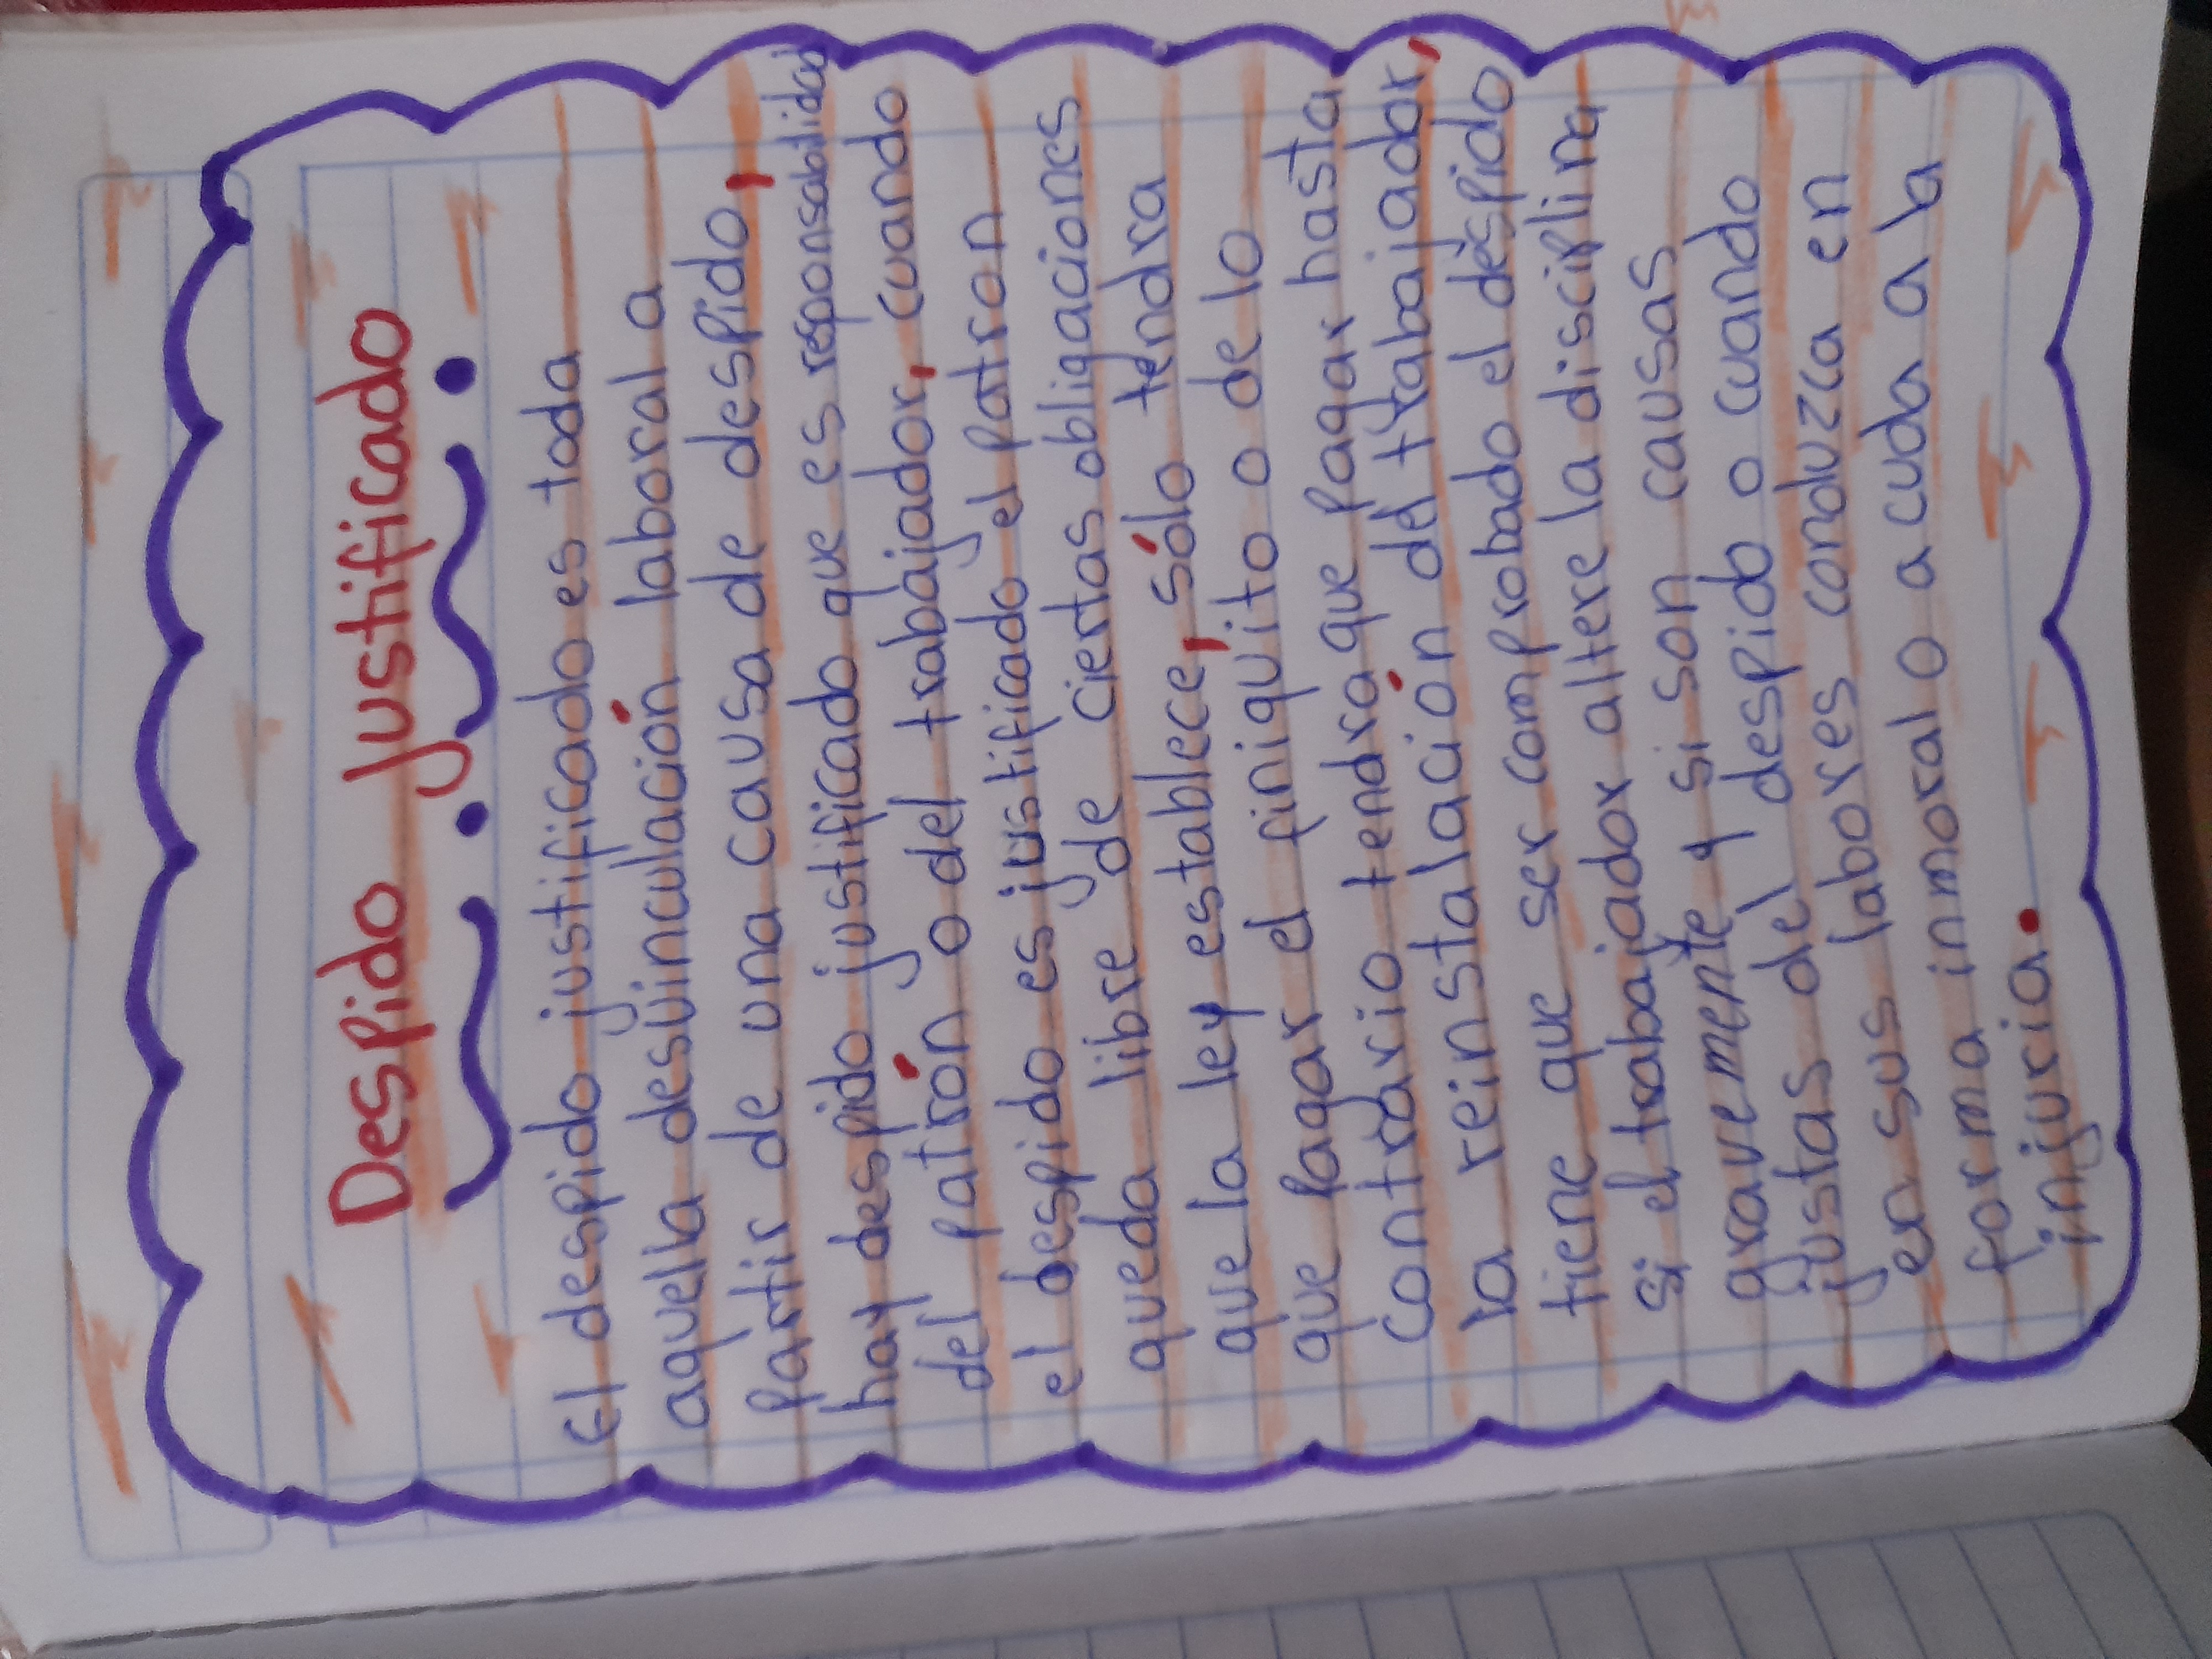 Despido justificado
El despido justificado es toda
aquella desvinculación laboral a
partir de una causa de despido,
hay despido justificado que es responsabilidad
del patrón o del trabajador, cuando
el despido es justificado el patron
queda libre de ciertas obligaciones
que la ley establece, sólo tendra
que pagar el finiquito o de lo
contrario tendra que pagar hasta
la reinstalación del trabajador,
tiene que ser comprobado el despido
si el trabajador altere la disciplina
gravemente y si son causas
justas del despido o cuando
en sus labores conduzca en
forma inmoral o acuda a la
injuria.